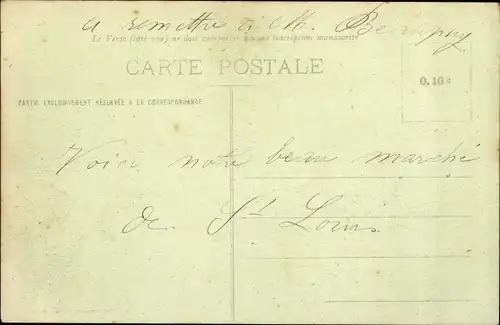 a remettre à M. Beaupuy
Le Verso (côté vue) ne doit comporter aucune inscription manuscrite
CARTE POSTALE
0.10c
PARTIE EXCLUSIVEMENT RÉSERVÉE A LA CORRESPONDANCE
Voici notre beau marché
de St Louis